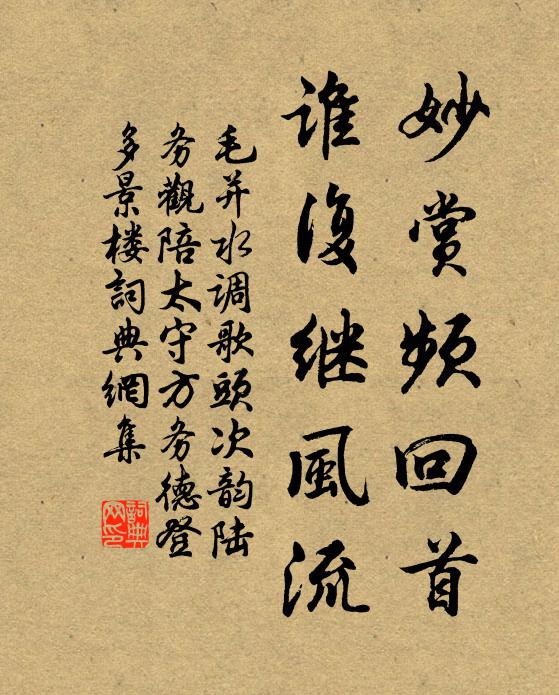 妙赏频回首
谁复继風流
毛并水调歌頭次韵陆
务觀陪太守方务德登
多景楼詞典網集
詞典
网印